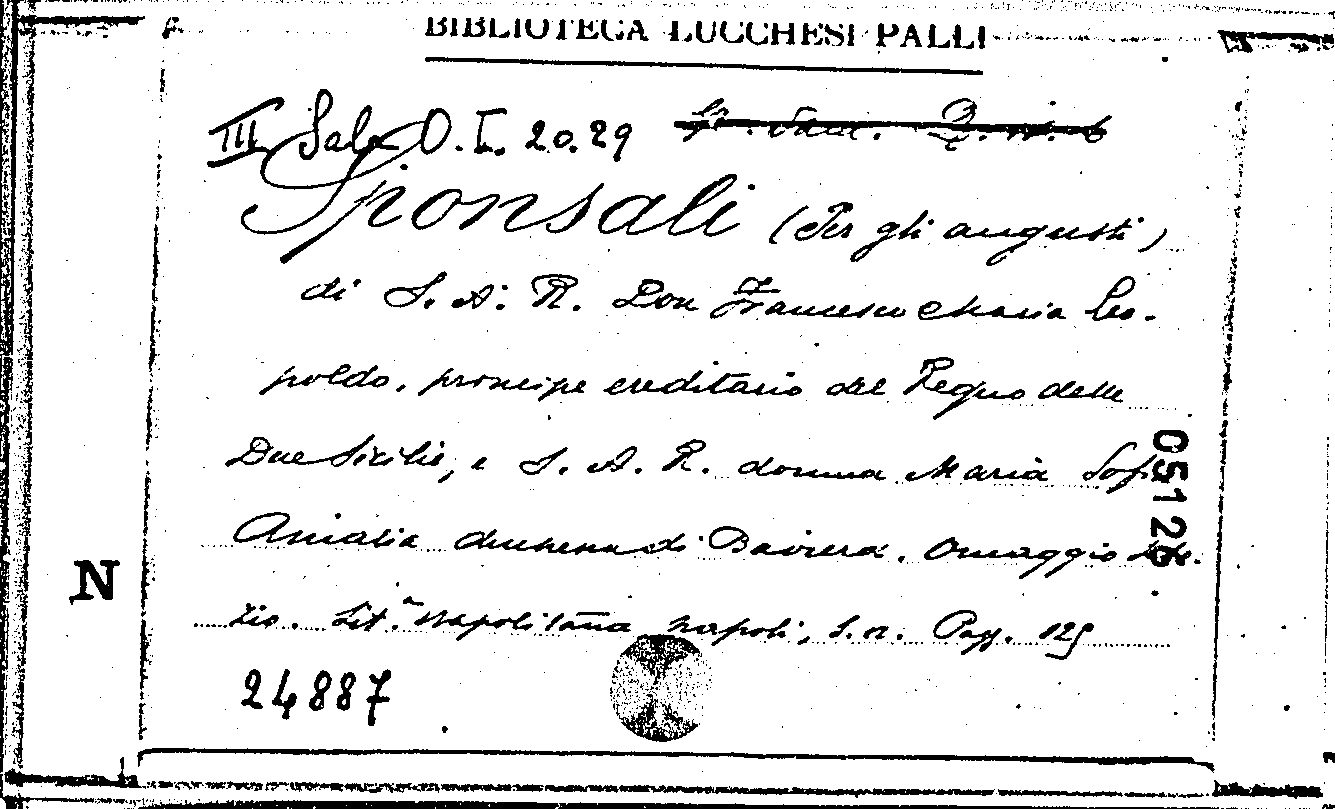 BIBLIOTECA LUCCHESI PALLI
III Sala O. I. 20.29
Sponsali (Per gli augusti)
di S. A. R. Don Francesco Maria Leo-
poldo, principe ereditario del Regno delle
Due Sicilie, e S. A. R. donna Maria Sofia
Amalia duchessa di Baviera. Omaggio
zio. Lit.ª Napolitana Napoli, s. n. Pagg. 125
24887
N
05128